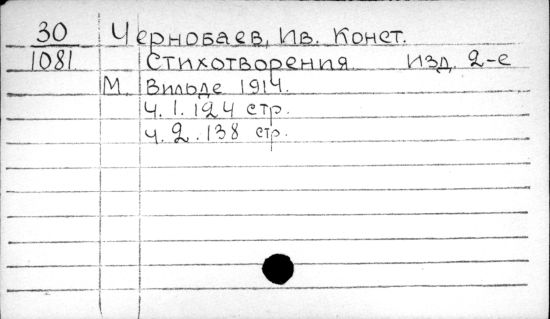 30 Чернобаев, Ив. Конст.
1081 Стихотворения изд. 2-е
М. Вильде 1914.
ч. 1. 124 стр.
ч. 2. 138 стр.